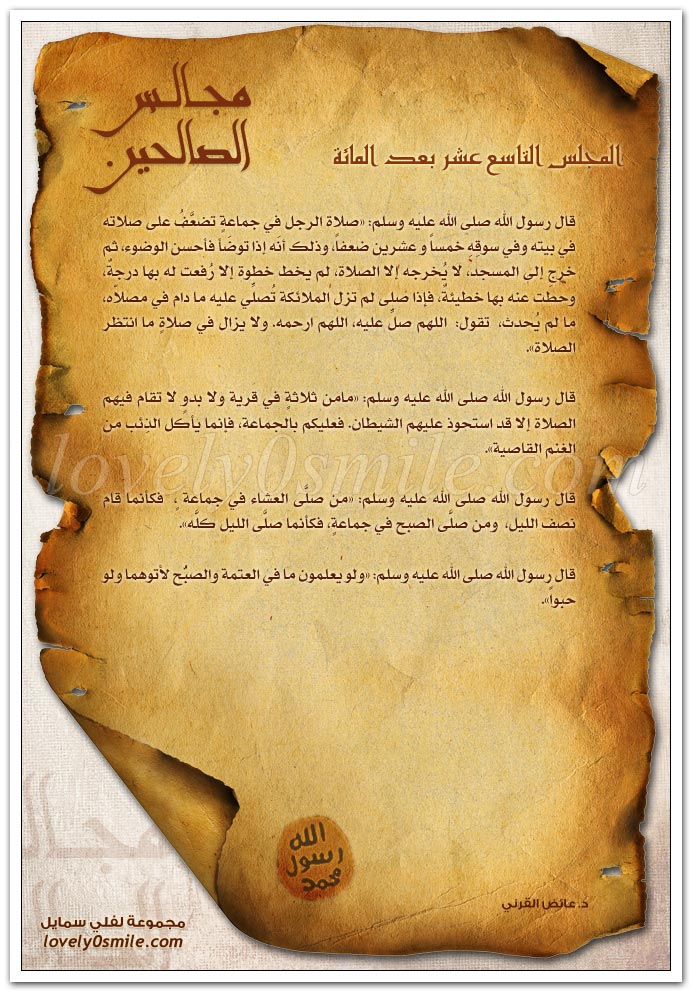 مجالس
الصالحين
المجلس التاسع عشر بعد المائة
قال رسول الله صلى الله عليه وسلم: «صلاة الرجل في جماعةٍ تضعَّفُ على صلاته
في بيته وفي سوقِهِ خمساً و عشرين ضعفاً، وذلك أنه إذا توضَأ فأحسن الوضوء، ثم
خرج إلى المسجد، لا يُخرجه إلا الصلاة، لم يخط خطوة إلا رُفعت له بها درجةٌ،
وحطت عنه بها خطيئةٌ، فإذا صلى لم تزل الملائكة تُصلِّي عليه ما دام في مصلاه،
ما لم يُحدث، تقول: اللهم صلِّ عليه، اللهم ارحمه. ولا يزال في صلاةٍ ما انتظر
الصلاة».
قال رسول الله صلى الله عليه وسلم: «مامن ثلاثةٍ في قرية ولا بدوٍ لا تقام فيهم
الصلاة إلا قد استحوذ عليهم الشيطان. فعليكم بالجماعة، فإنما يأكل الذئب من
الغنم القاصية».
قال رسول الله صلى الله عليه وسلم: «من صلَّى العشاء في جماعة ٍ، فكأنما قام
نصف الليل، ومن صلَّى الصبح في جماعةٍ، فكأنما صلَّى الليل كلَّه».
قال رسول الله صلى الله عليه وسلم: «ولو يعلمون ما في العتمة والصبُح لأتوهما ولو
حبواً».
lovely0smile.com
الله
رسول
محمد
د.عائض القرني
مجموعة لفلي سمايل
lovely0smile.com
مجالس